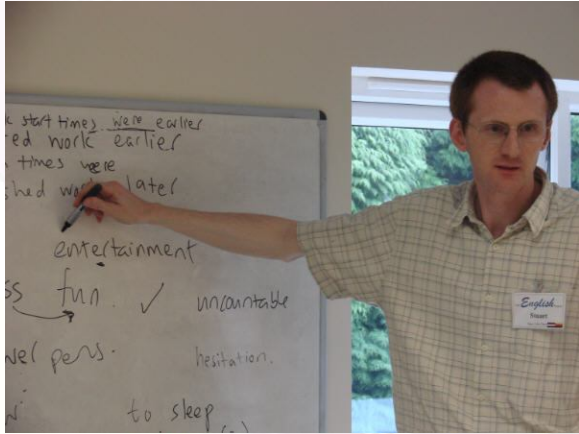 start times were earlier
ed work earlier
times were
shed work later
entertainment
ss fun. ✓ uncountable
wer pens. hesitation.
to sleep
English